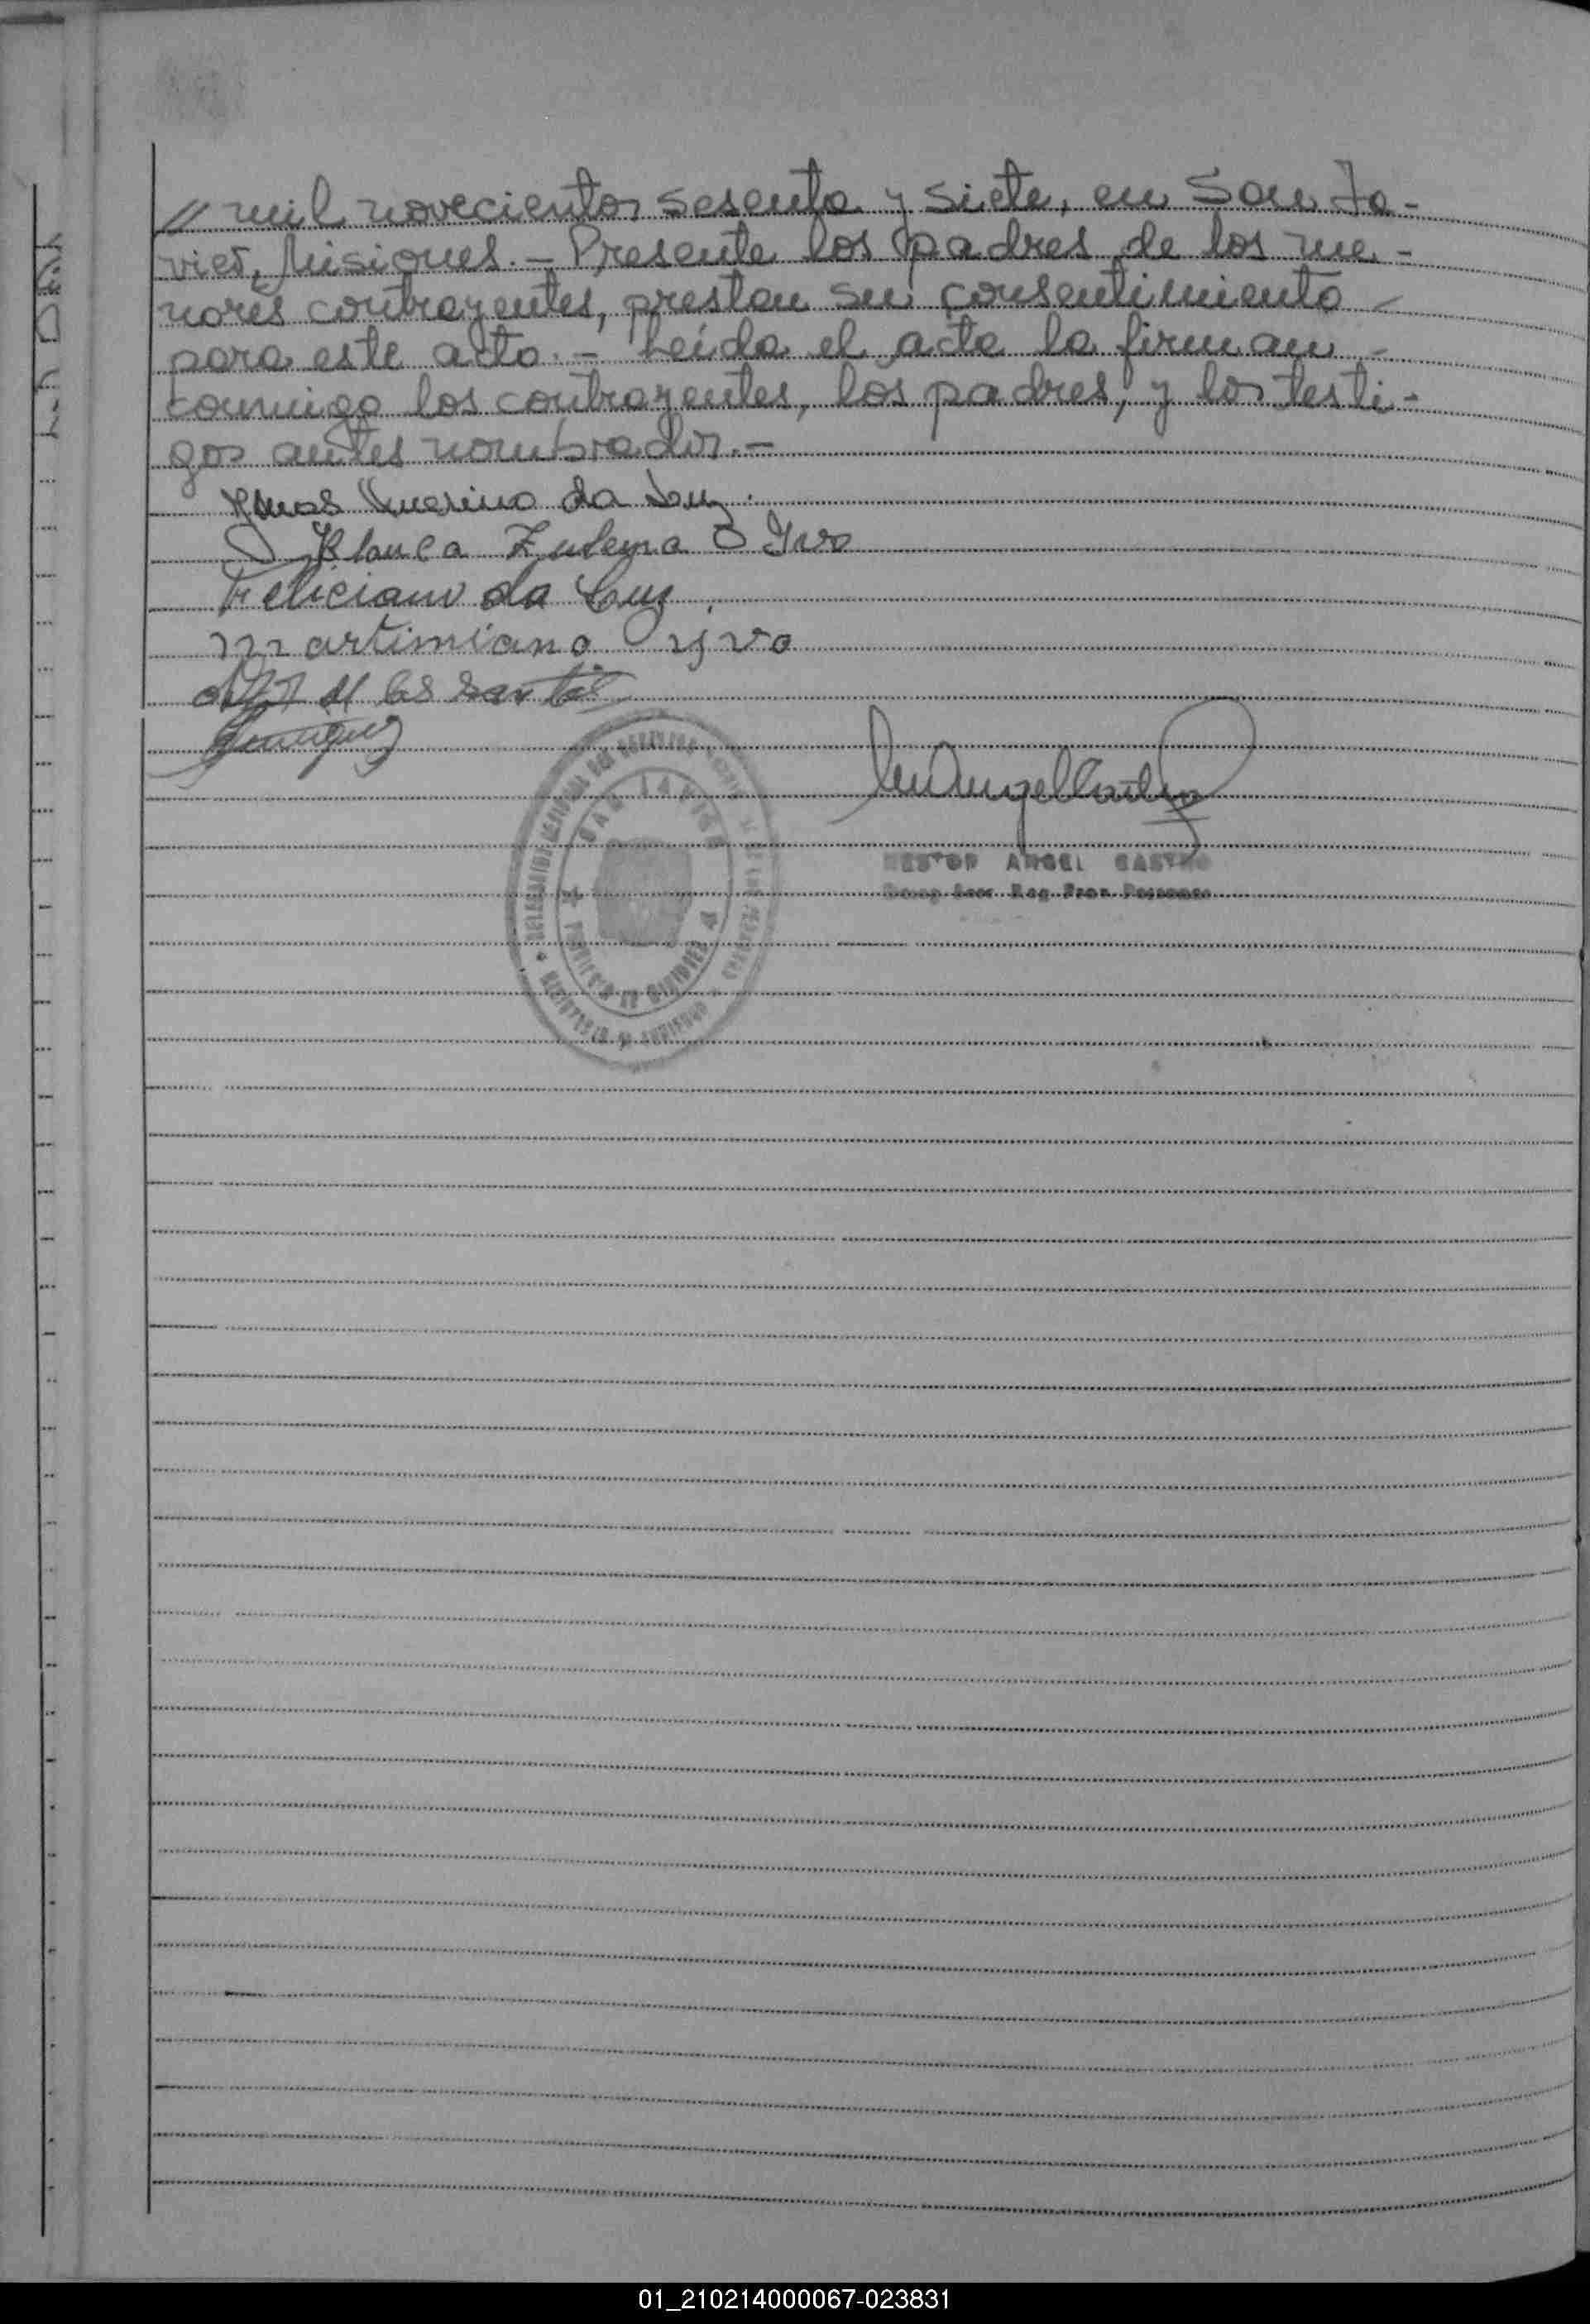 // mil novecientos sesenta y siete, en San Ja-
vier, Misiones.- Presente los padres de los me-
nores contrayentes, prestan su consentimiento -
para este acto.- Leída el acta la firman -
conmigo los contrayentes, los padres, y los testi-
gos antes nombrados.-
da Luz.
Blanca Zulema Yvo
Feliciano da Luz.
martimiano yvo
de los santos
NESTOR ANGEL CASTRO
SAN JAVIER
01_210214000067-023831